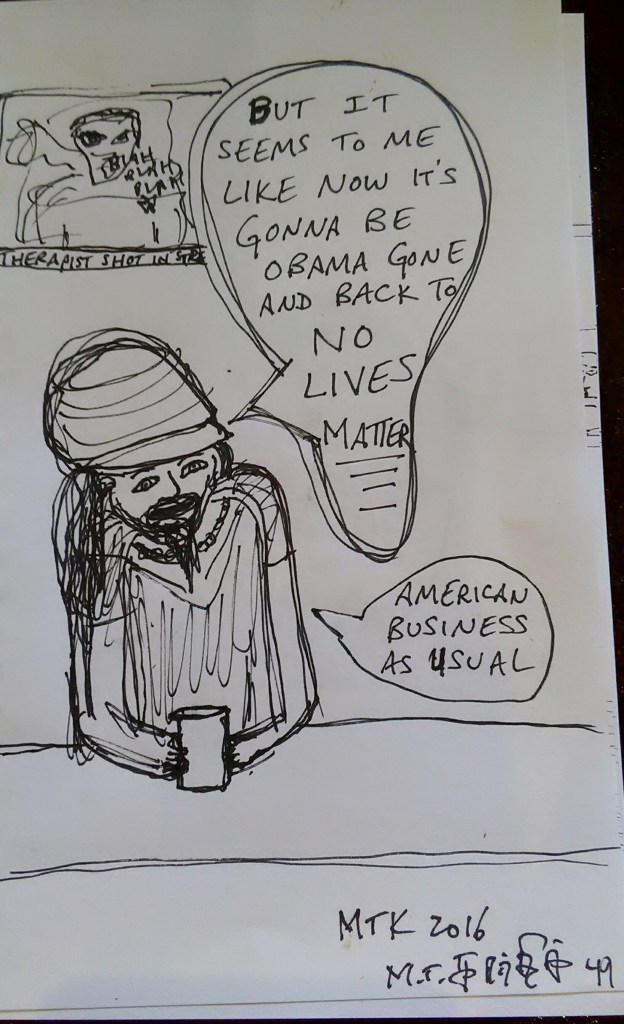 BLAH
BLAH
BLAH
THERAPIST SHOT IN STRE
BUT IT
SEEMS TO ME
LIKE NOW IT'S
GONNA BE
OBAMA GONE
AND BACK TO
NO
LIVES
MATTER
AMERICAN
BUSINESS
AS USUAL
MTK 2016
M.T.
49